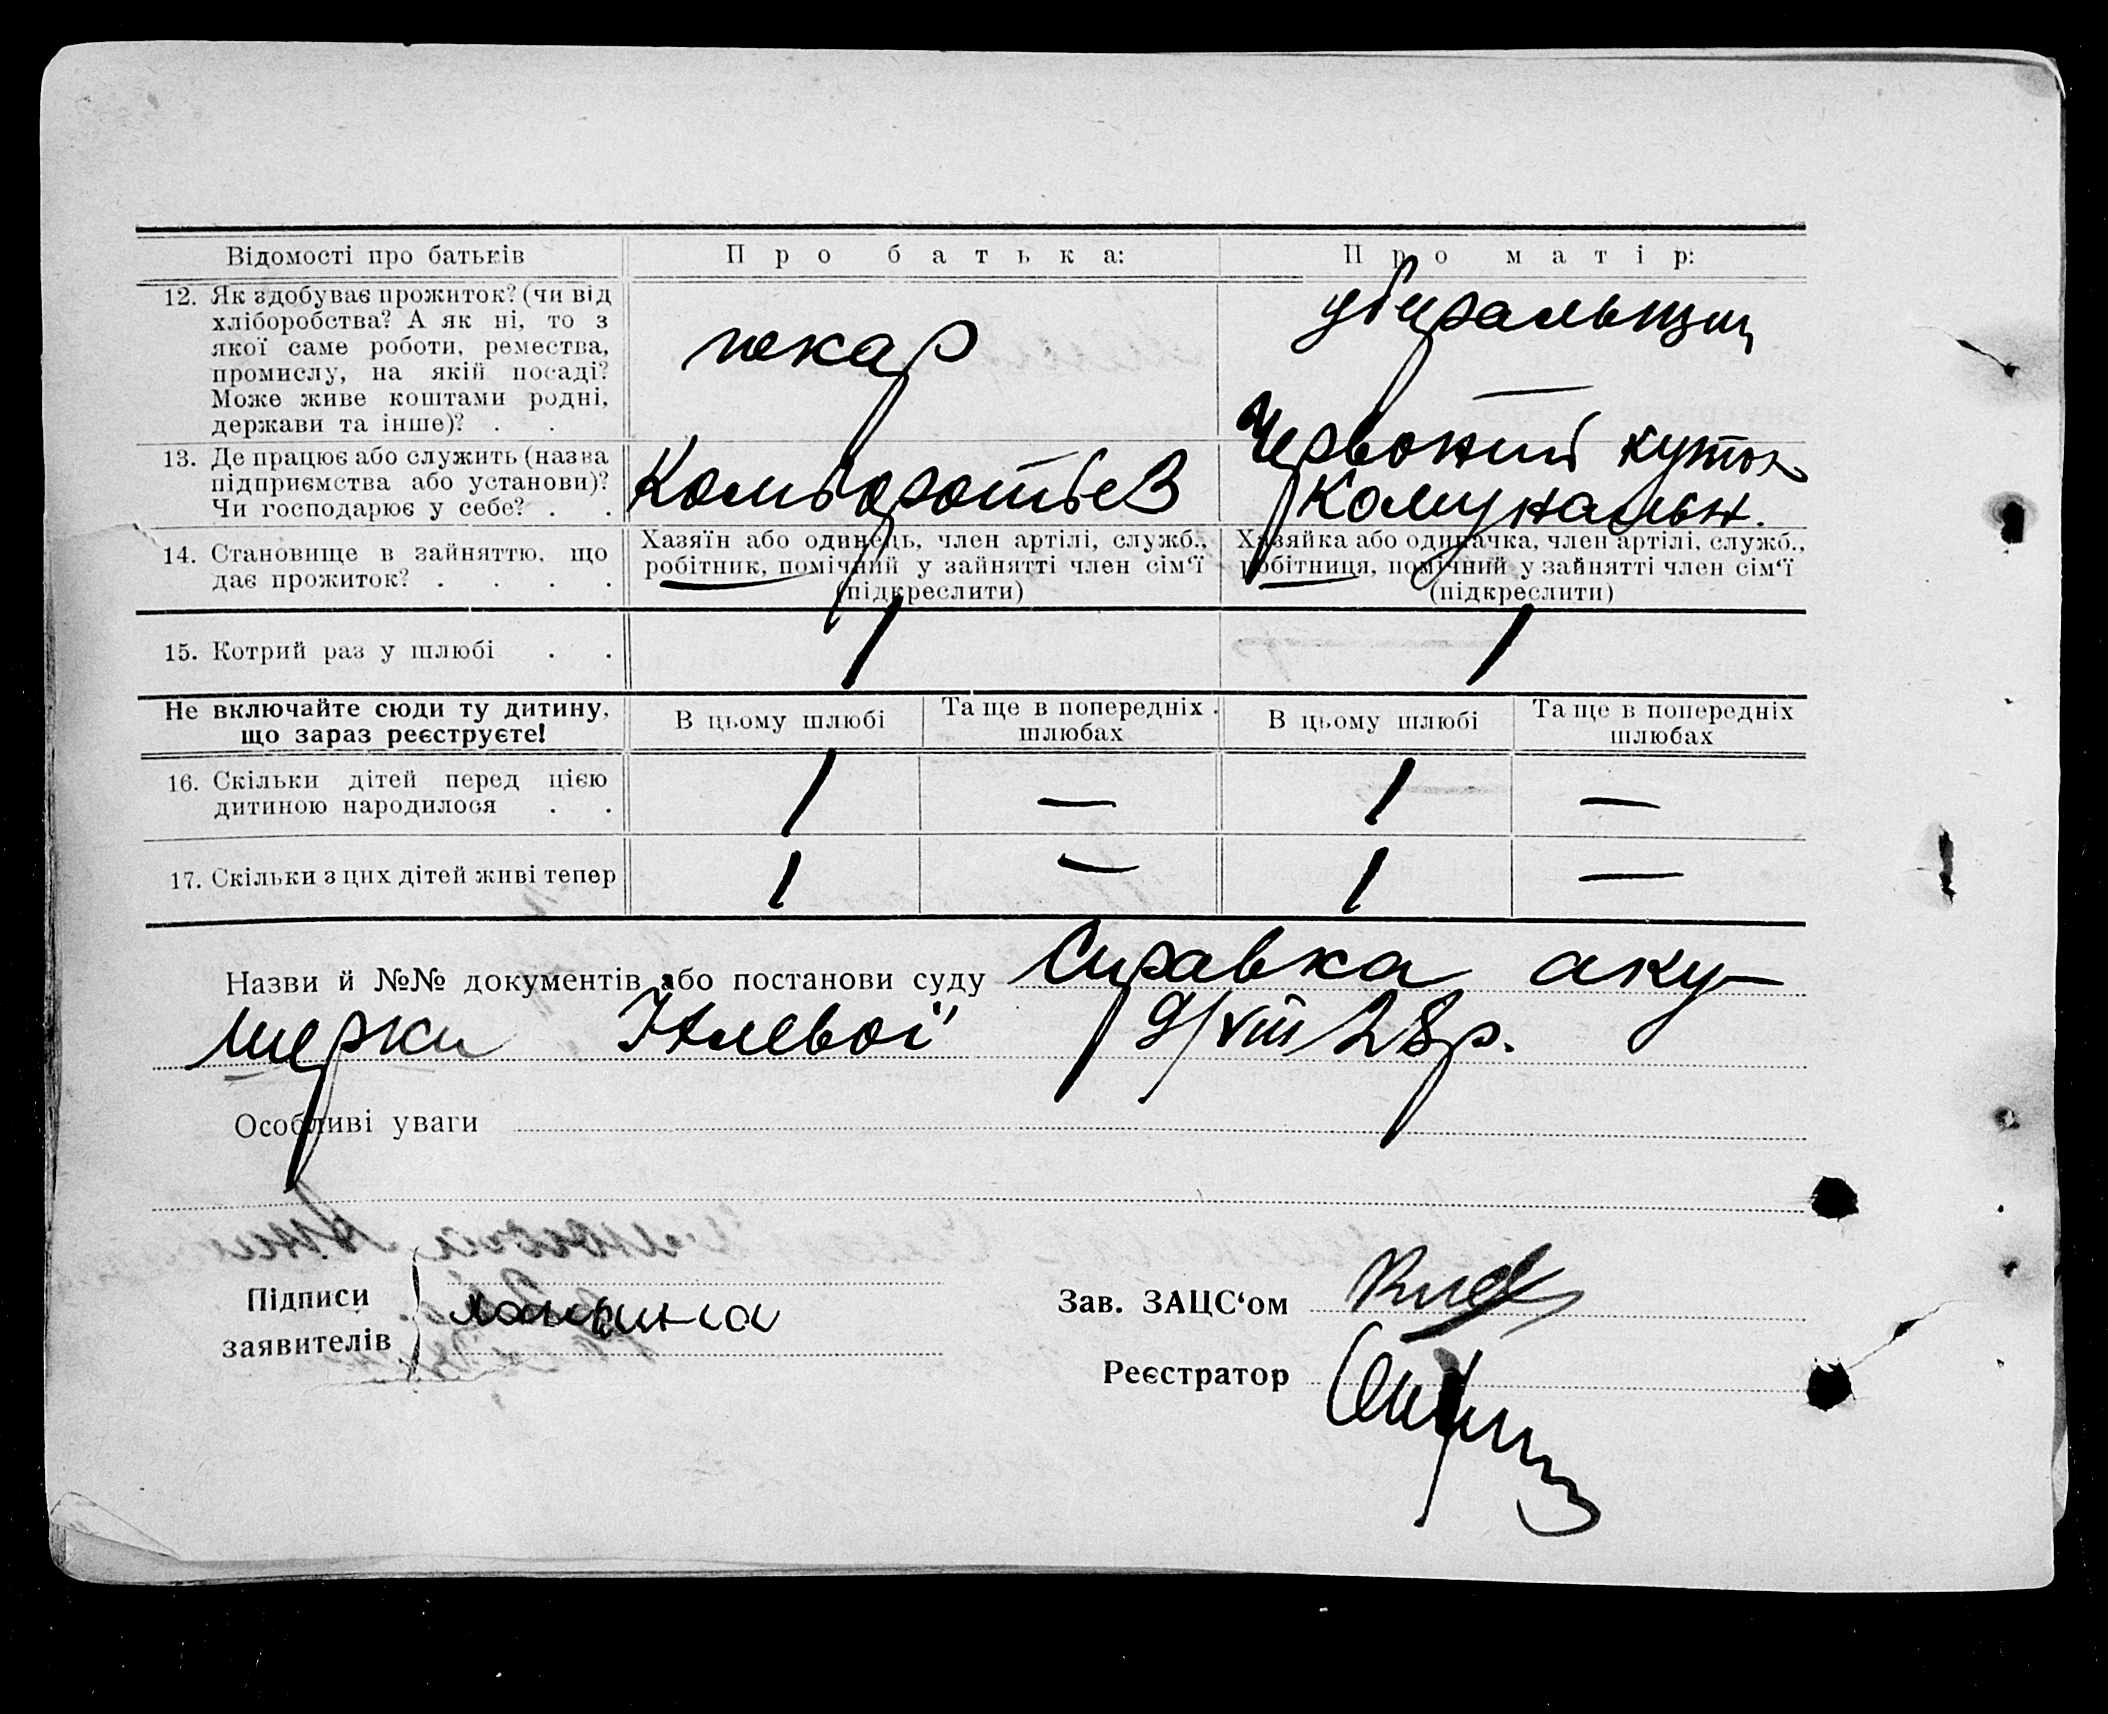 Відомості про батьків
Про батька:
Про матір:
12. Як здобуває прожиток? (чи від
хліборобства? А як ні, то з
якої саме роботи, ремества,
промислу, на якій посаді?
Може живе коштами родні,
держави та інше)? . .
пекар
убиральщиц
13. Де працює або служить (назва
підприємства або установи)?
Чи господарює у себе? . .
Червоний куток
Комунальн.
14. Становище в зайняттю, що
дає прожиток? . . . .
Хазяїн або одинець, член артілі, служб.,
робітник, помічний у зайнятті член сім‘ї
(підкреслити)
Хазяйка або одиначка, член артілі, служб.,
робітниця, помічний у зайнятті член сім‘ї
(підкреслити)
15. Котрий раз у шлюбі . .
1
1
Не включайте сюди ту дитину,
що зараз реєструєте!
В цьому шлюбі
Та ще в попередніх
шлюбах
В цьому шлюбі
Та ще в попередніх
шлюбах
16. Скільки дітей перед цією
дитиною народилося . .
1
—
1
—
17. Скільки з цих дітей живі тепер
1
—
1
—
Назви й №№ документів або постанови суду Справка аку-
шерки 9/VIII 28р.
Особливі уваги
Підписи
заявителів
Зав. ЗАЦС‘ом
Реєстратор